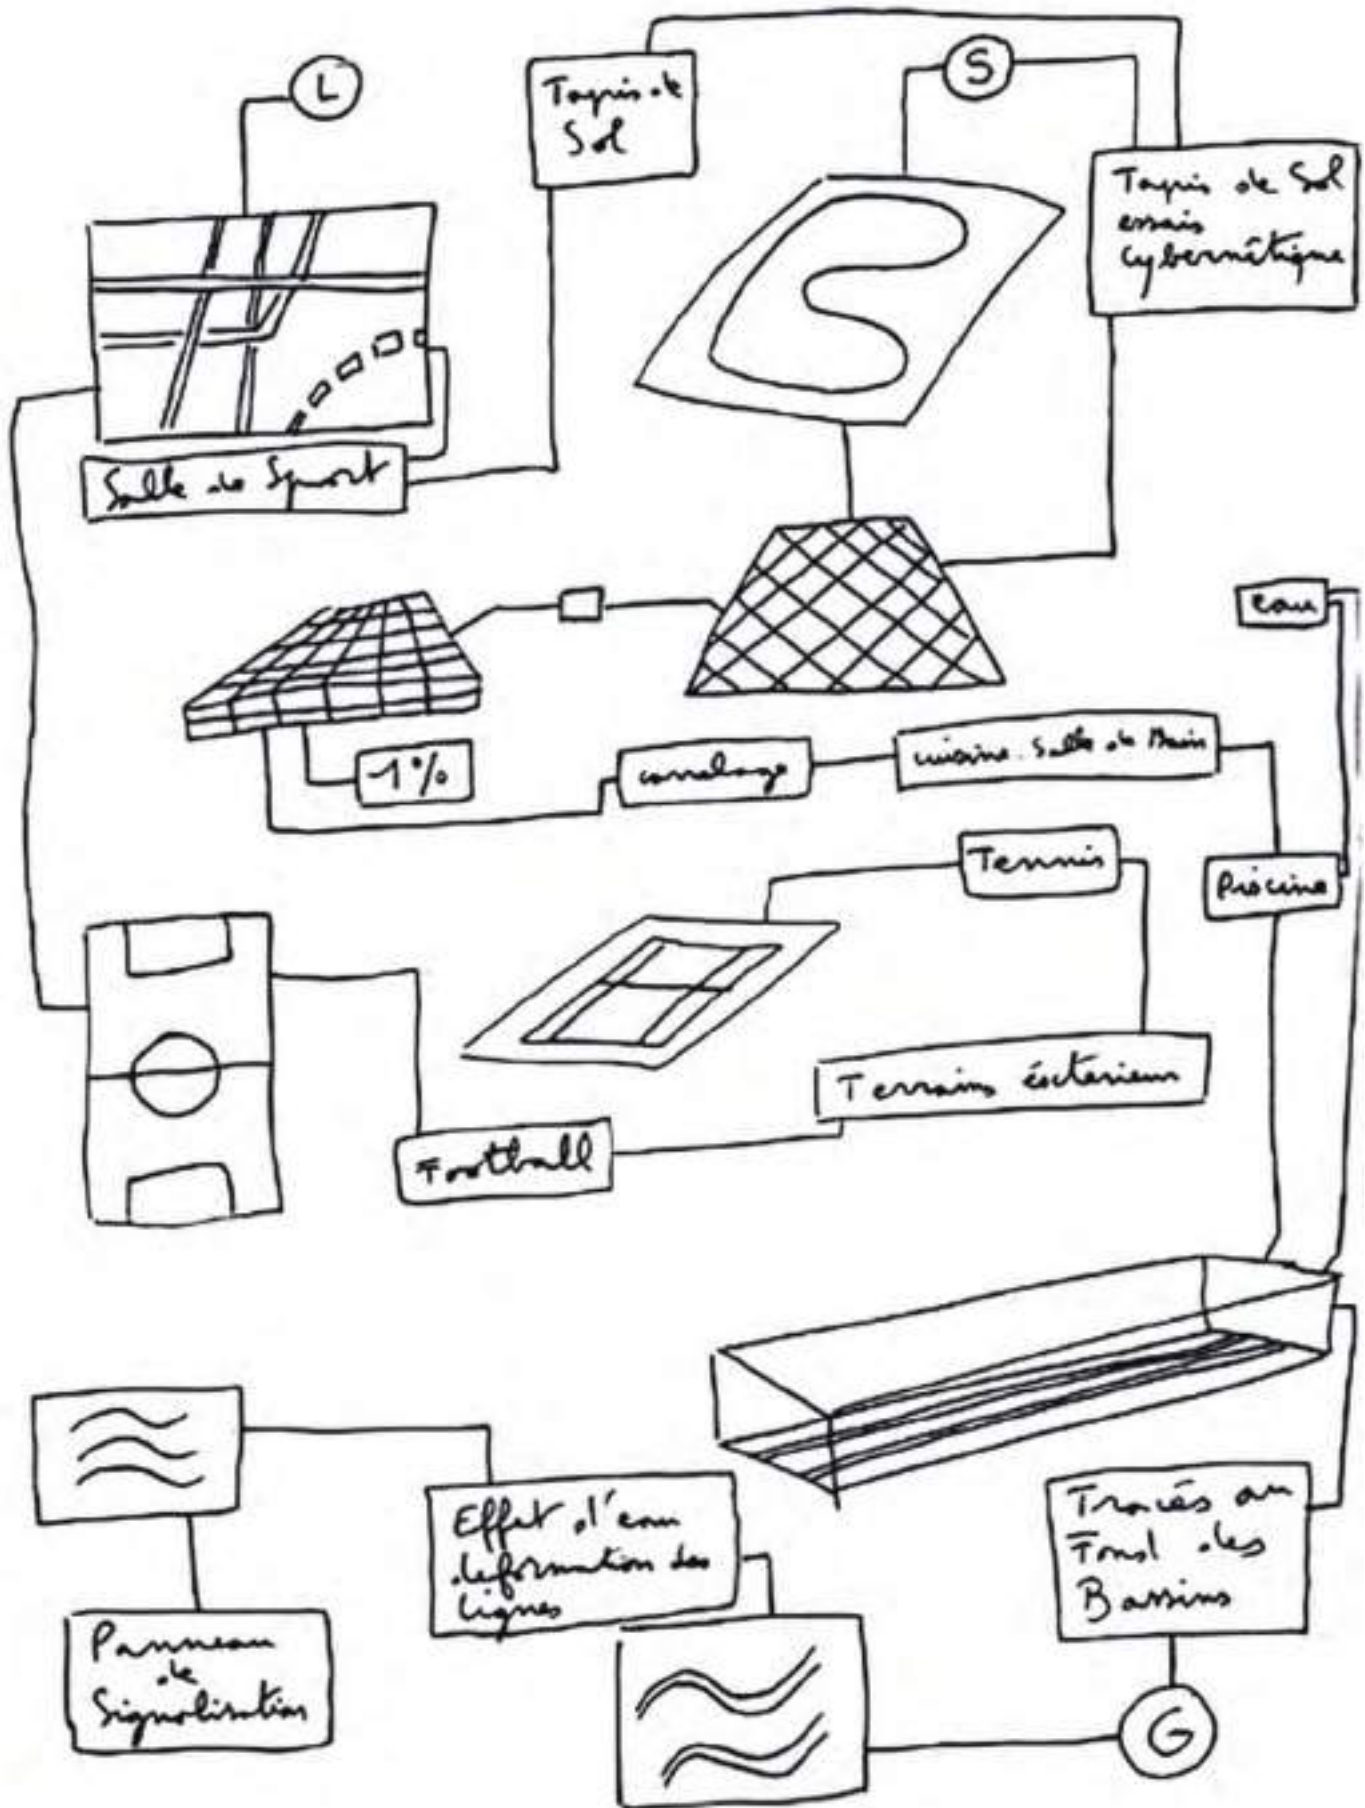 L
Tapis de
Sol
S
Tapis de Sol
essais
cybernétique
Salle de Sport
eau
1%
carrelage
cuisine. Salle de Bain
Tennis
Piscine
Terrains éxterieur
Football
Effet d'eau
deformation des
lignes
Tracés au
Fond des
Bassins
Panneau
de
Signalisation
G